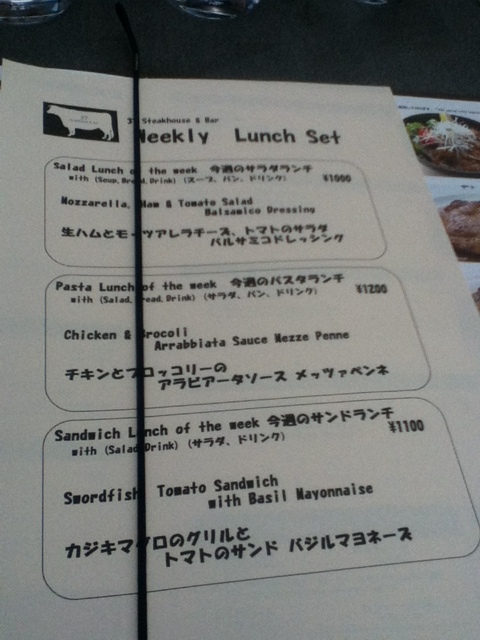 37 Steakhouse & Bar
Weekly Lunch Set
Salad Lunch of the week 今週のサラダランチ
with (Soup, Bread, Drink) (スープ、パン、ドリンク) ¥1000
Mozzarella, Ham & Tomato Salad
Balsamico Dressing
生ハムとモッツアレラチーズ、トマトのサラダ
バルサミコドレッシング
Pasta Lunch of the week 今週のパスタランチ
with (Salad, Bread, Drink) (サラダ、パン、ドリンク) ¥1200
Chicken & Brocoli
Arrabbiata Sauce Mezze Penne
チキンとブロッコリーの
アラビアータソース メッツァペンネ
Sandwich Lunch of the week 今週のサンドランチ
with (Salad, Drink) (サラダ、ドリンク) ¥1100
Swordfish Tomato Sandwich
with Basil Mayonnaise
カジキマグロのグリルと
トマトのサンド バジルマヨネーズ